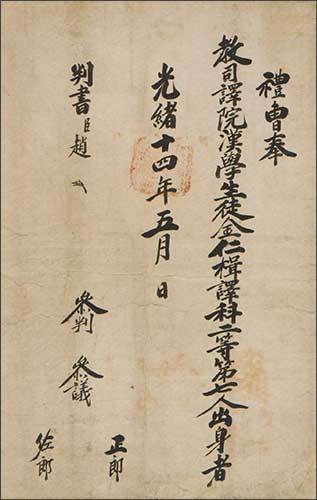 禮曹奉
敎司譯院漢學生徒金仁楫譯科二等第七人出身者
光緖十四年五月 日
判書臣趙
參判
參議
正郎
佐郎